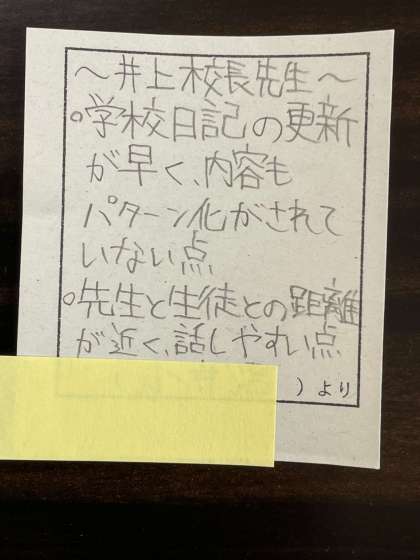 ～井上校長先生～
○学校日記の更新
が早く、内容も
パターン化がされて
いない点
○先生と生徒との距離
が近く、話しやすい点
）より